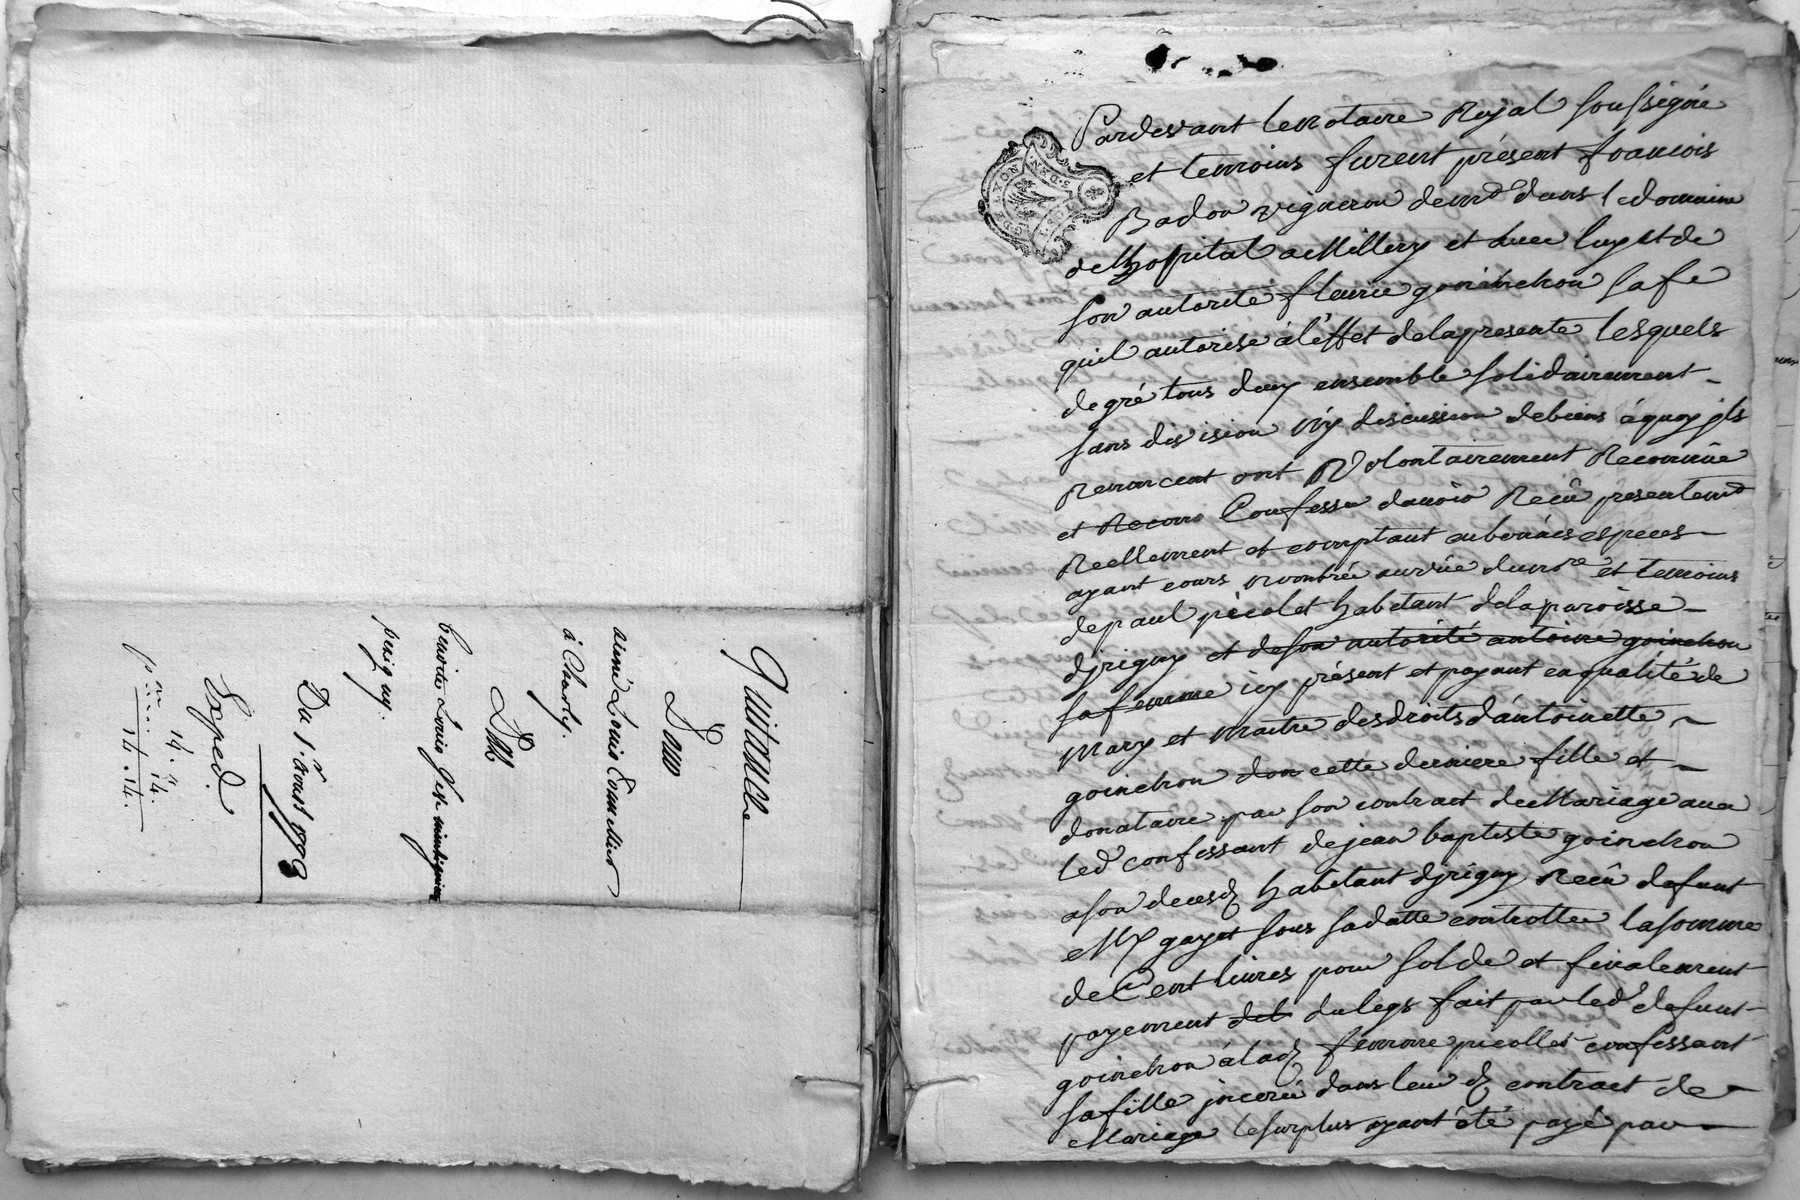 Quittance
Pour
aimé Louis
à Charly.
Par
Benoit Louis
Du 1.r aoust 1773
Exped.
14.
14.14.
Pardevant le notaire Royal soussigné
et temoins furent présent francois
Badon vigneron demt dans le domaine
de lhospital a Millery et avec luy et de
son autorité fleurie goinchon sa fe
quil autorise á l'éffet de la presente lesquels
de gré tous deux ensemble solidairement
sans division ny discussion de biens á quoy jls
Renoncent ont volontairement Reconnüe
et Recono Confessé d'avoir Reçû presentemt
Reellement et comptant en bonnes especes
ayant cours nombrée au vüe du nore et temoins
de paul picolet habitant de la paroisse
djrigny et de son autorité antoine goinchon
sa femme icy présent et payant en qualité de
Mary et maitre des droits d'ántoinette
goinchon don cette derniere fille et
donataire par son contract de Mariage avec
led confessant de jean baptiste goinchon
a son deces habitant djrigny Reçû defunt
Me gayet sous sa datte controllée la somme
de Cent livres pour solde et finalement
payement del du legs fait par led defunt
goinchon á lad femme picollet confessant
sa fille jnceré dans leur d contract de
Mariage le surplus ayant été payé par